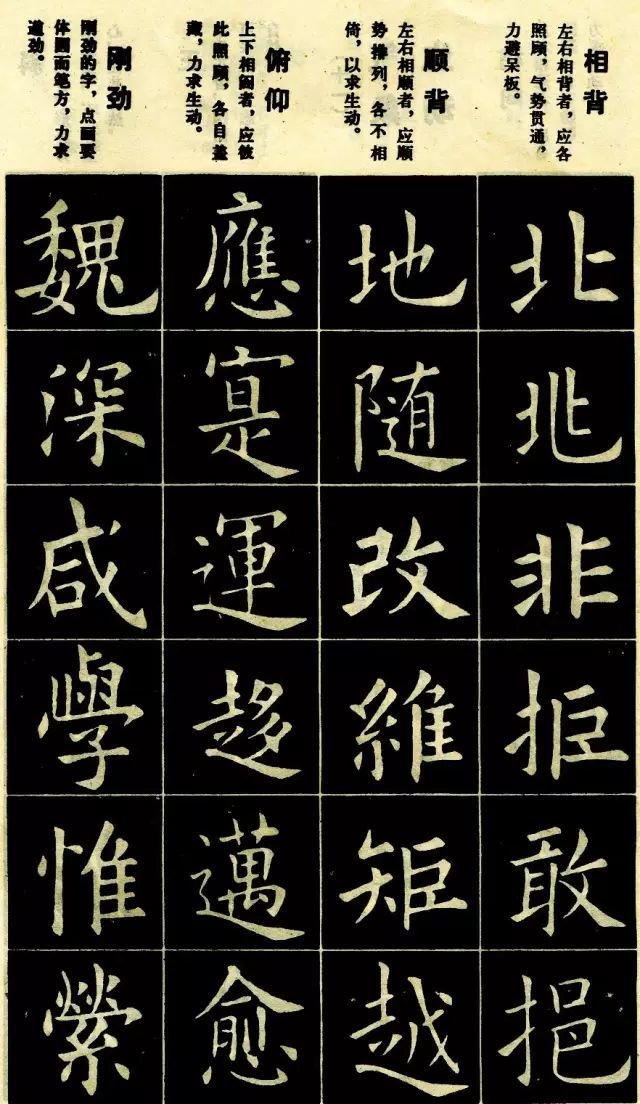 相背
左右相背者，应各
照顾，气势贯通，
力避呆板。
北
兆
非
拒
敢
挹
顺背
左右相顺者，应顺
势排列，各不相
倚，以求生动。
地
随
改
維
矩
越
俯仰
上下相阔者，应彼
此照顾，各自盖
藏，力求生动。
應
寔
運
趍
邁
愈
刚劲
刚劲的字，点画要
体圆而笔方，力求
遒劲。
魏
深
咸
學
惟
縈